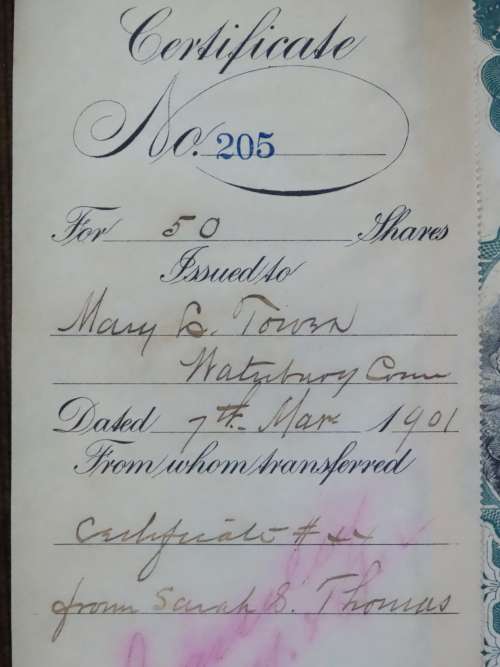 Certificate
No. 205
For 50 Shares
Issued to
Mary L. Towen
Waterbury Conn
Dated 7th Mar 1901
From whom transferred
Certificate # 44
from Sarah S. Thomas